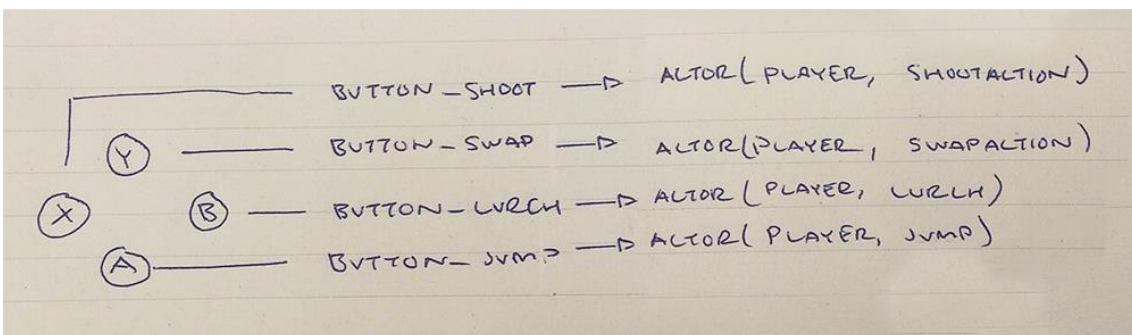 BUTTON_SHOOT → ACTOR(PLAYER, SHOOTACTION)
Y BUTTON_SWAP → ACTOR(PLAYER, SWAPACTION)
X B BUTTON_LURCH → ACTOR(PLAYER, LURCH)
A BUTTON_JUMP → ACTOR(PLAYER, JUMP)